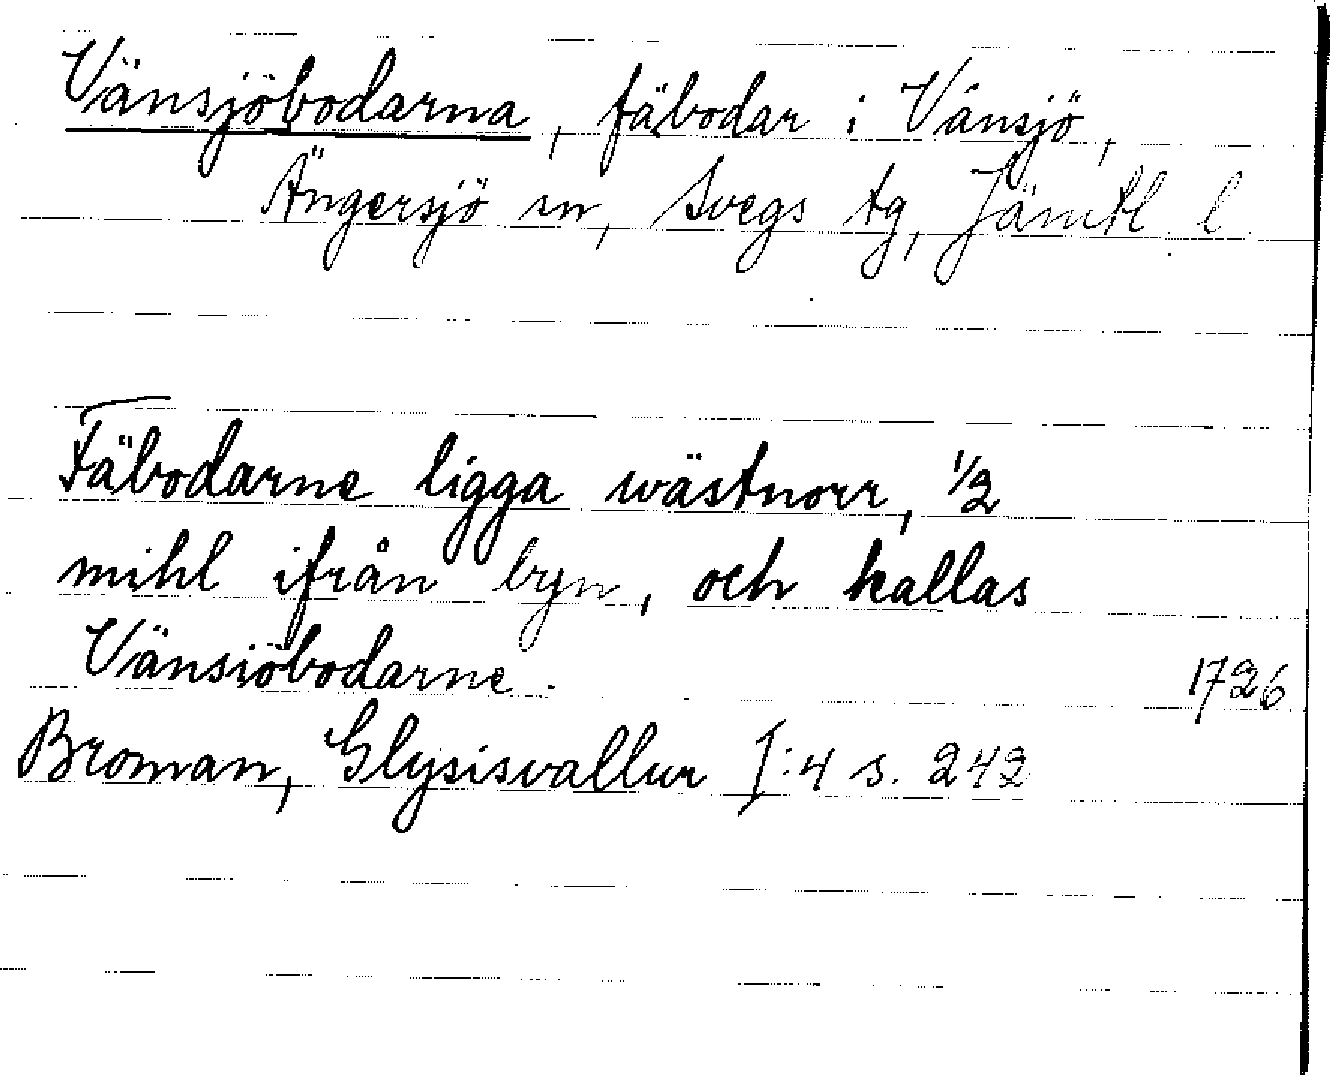 Vänsjöbodarna, fäbodar i Vänsjö,
Ängersjö sn, Svegs tg, Jämtl l
Fäbodarne ligga wästnorr, 1/2
mihl ifrån byn, och kallas
Vänsiöbodarne. 1726
Broman, Glysisvallur I:4 s. 242